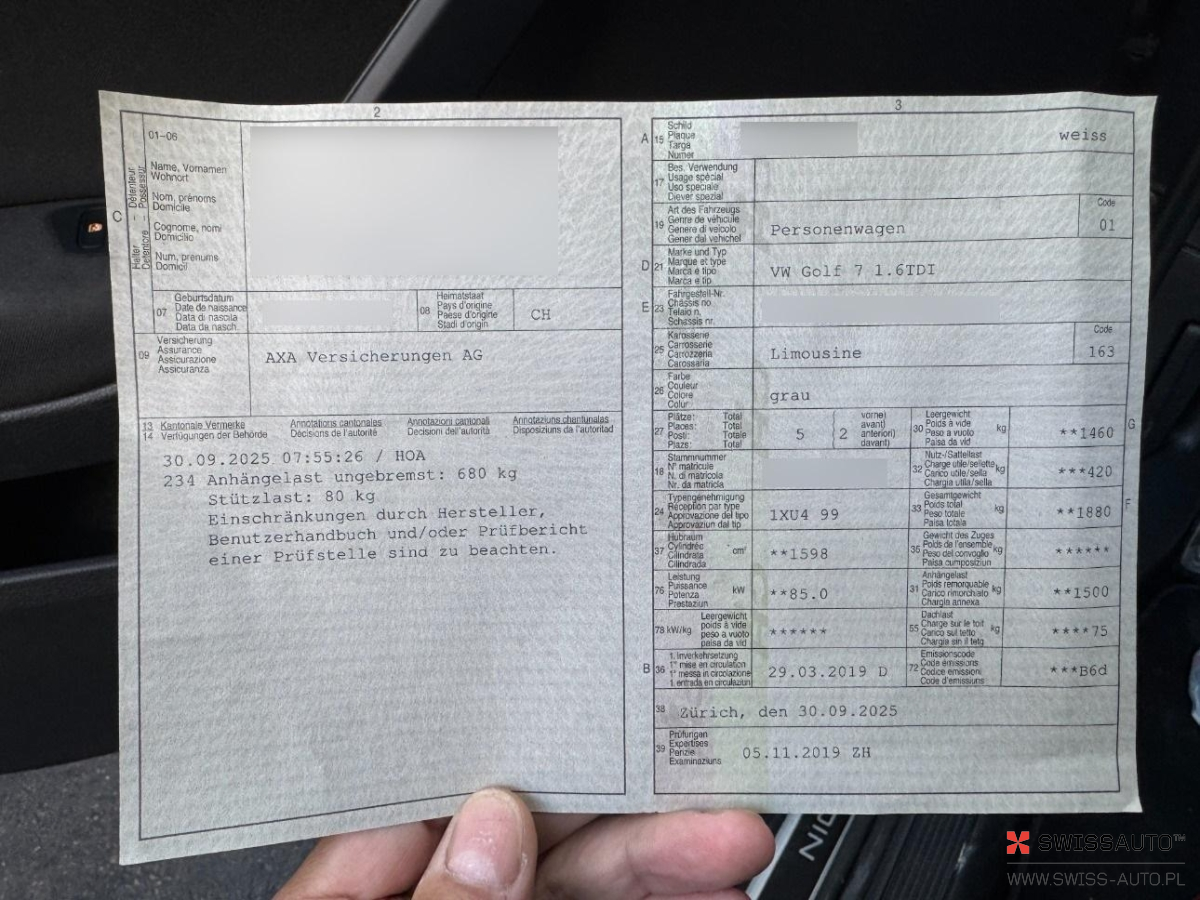 2
01-06
C
Halter - Détenteur
Detentore - Possessur
Name, Vornamen
Wohnort
Nom, prénoms
Domicile
Cognome, nomi
Domicilio
Num, prenums
Domicil
07 Geburtsdatum
Date de naissance
Data di nascita
Data da nasch.
08 Heimatstaat
Pays d'origine
Paese d'origine
Stadi d'origin
CH
09 Versicherung
Assurance
Assicurazione
Assicuranza
AXA Versicherungen AG
13 Kantonale Vermerke Annotations cantonales Annotazioni cantonali Annotaziuns chantunalas
14 Verfügungen der Behörde Décisions de l'autorité Decisioni dell'autorità Disposiziuns da l'autoritad
30.09.2025 07:55:26 / HOA
234 Anhängelast ungebremst: 680 kg
Stützlast: 80 kg
Einschränkungen durch Hersteller,
Benutzerhandbuch und/oder Prüfbericht
einer Prüfstelle sind zu beachten.
3
A 15 Schild
Plaque
Targa
Numer
weiss
17 Bes. Verwendung
Usage spécial
Uso speciale
Diever spezial
19 Art des Fahrzeugs
Genre de véhicule
Genere di veicolo
Gener dal vehichel
Personenwagen
Code
01
D 21 Marke und Typ
Marque et type
Marca e tipo
Marca e tip
VW Golf 7 1.6TDI
E 23 Fahrgestell-Nr.
Châssis no
Telaio n.
Schassis nr.
25 Karosserie
Carrosserie
Carrozzeria
Carossaria
Limousine
Code
163
26 Farbe
Couleur
Colore
Colur
grau
27 Plätze: Total
Places: Total
Posti: Totale
Plazs: Total
5 (2 vorne)
avant)
anteriori)
davant)
30 Leergewicht
Poids à vide
Peso a vuoto
Paisa da vid
kg
**1460
G
18 Stammnummer
N° matricule
N. di matricola
Nr. da matricla
32 Nutz-/Sattellast
Charge utile/sellette
Carico utile/sella
Chargia utila/sella
kg
***420
24 Typengenehmigung
Réception par type
Approvazione del tipo
Approvaziun dal tip
1XU4 99
33 Gesamtgewicht
Poids total
Peso totale
Paisa totala
kg
**1880
F
37 Hubraum
Cylindrée
Cilindrata
Cilindrada
cm³
**1598
35 Gewicht des Zuges
Poids de l'ensemble
Peso del convoglio
Paisa cumposiziun
kg
******
76 Leistung
Puissance
Potenza
Prestaziun
kW
**85.0
31 Anhängelast
Poids remorquable
Carico rimorchiato
Chargia annexa
kg
**1500
78 kW/kg Leergewicht
poids à vide
peso a vuoto
paisa da vid
******
55 Dachlast
Charge sur le toit
Carico sul tetto
Chargia sin il tetg
kg
****75
B 36 1. Inverkehrsetzung
1re mise en circulation
1a messa in circolazione
1. entrada en circulaziun
29.03.2019 D
72 Emissionscode
Code émissions
Codice emissioni
Code d'emissiuns
***B6d
38 Zürich, den 30.09.2025
39 Prüfungen
Expertises
Perizie
Examinaziuns
05.11.2019 ZH
SWISSAUTO™
WWW.SWISS-AUTO.PL